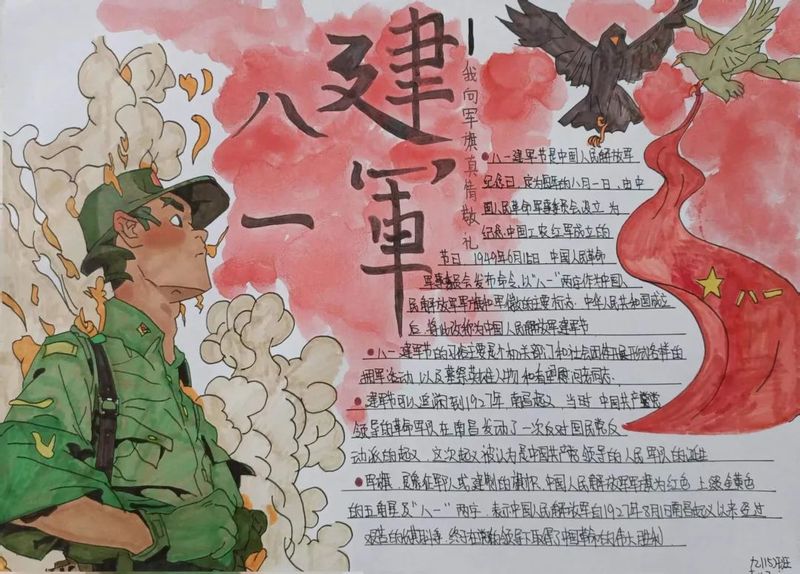 八一
建軍
我向军旗真情敬礼
八一
八一建军节是中国人民解放军
纪念日，定为每年的八月一日，由中
国人民革命军事委员会设立，为
纪念中国工农红军成立的
节日。1949年6月15日，中国人民革命
军事委员会发布命令，以“八一”两字作为中国人
民解放军军旗和军徽的主要标志。中华人民共和国成立
后，将此改称为中国人民解放军建军节
八一建军节的主要是相关部门和社会团体开展形式各样的
拥军活动，以及慕祭英雄人物和看望慰问老同志。
建军节可以追溯到1927年南昌起义，当时中国共产党
领导的革命军队在南昌发动了一次反对国民党反
动派的起义，这次起义被认为是中国共产党领导的人民军队的诞生
军旗，是象征军队或建制的旗帜，中国人民解放军军旗为红色，上缀金黄色
的五角星及“八一”两字，表示中国人民解放军自1927年8月1日南昌起义以来经过
艰苦的斗争，终于在党的领导下取得了中国革命的伟大胜利
九(15)班